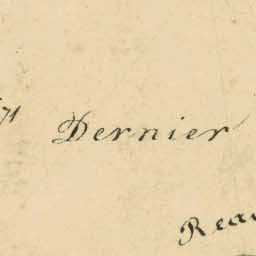 71
Dernier
Rea